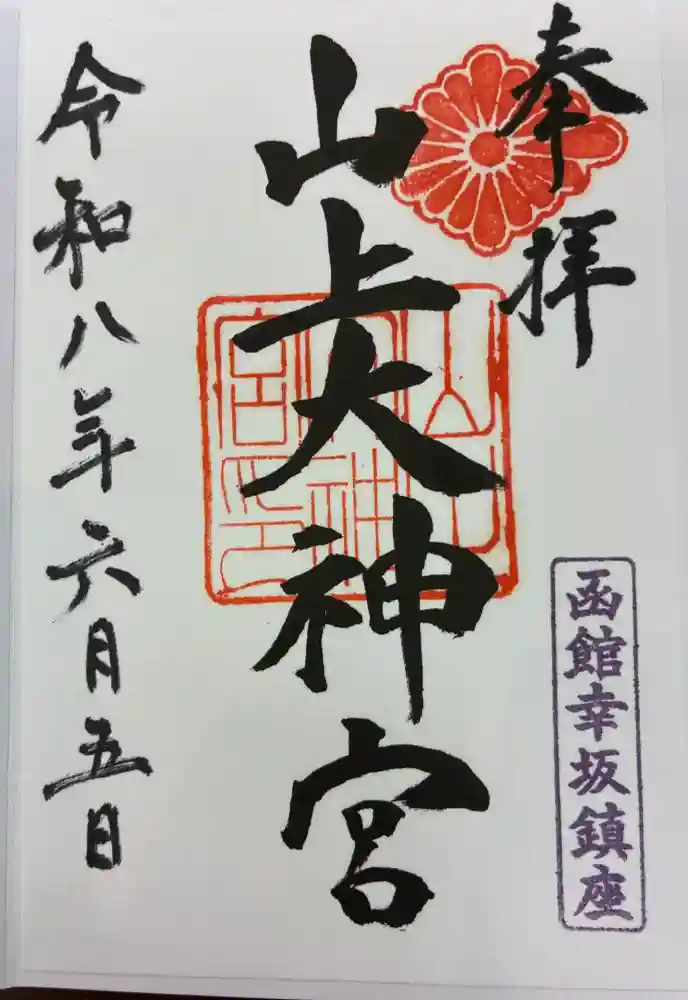 奉拝
山上大神宮
函館幸坂鎮座
令和八年六月五日